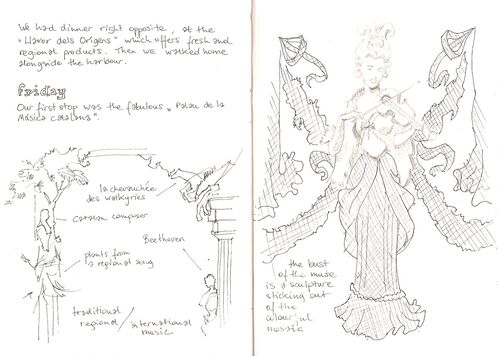 We had dinner right opposite, at the
"Llavor dels Orígens" which offers fresh and
regional products. Then we walked home
alongside the harbour.
friday
Our first stop was the fabulous "Palau de la
Música Catalana".
la chevauchée
des walkyries
catalan composer
Beethoven
plants from
a regional song
traditional
regional / international
music
the bust
of the muse
is a sculpture
sticking out
of the
colourful
mosaic